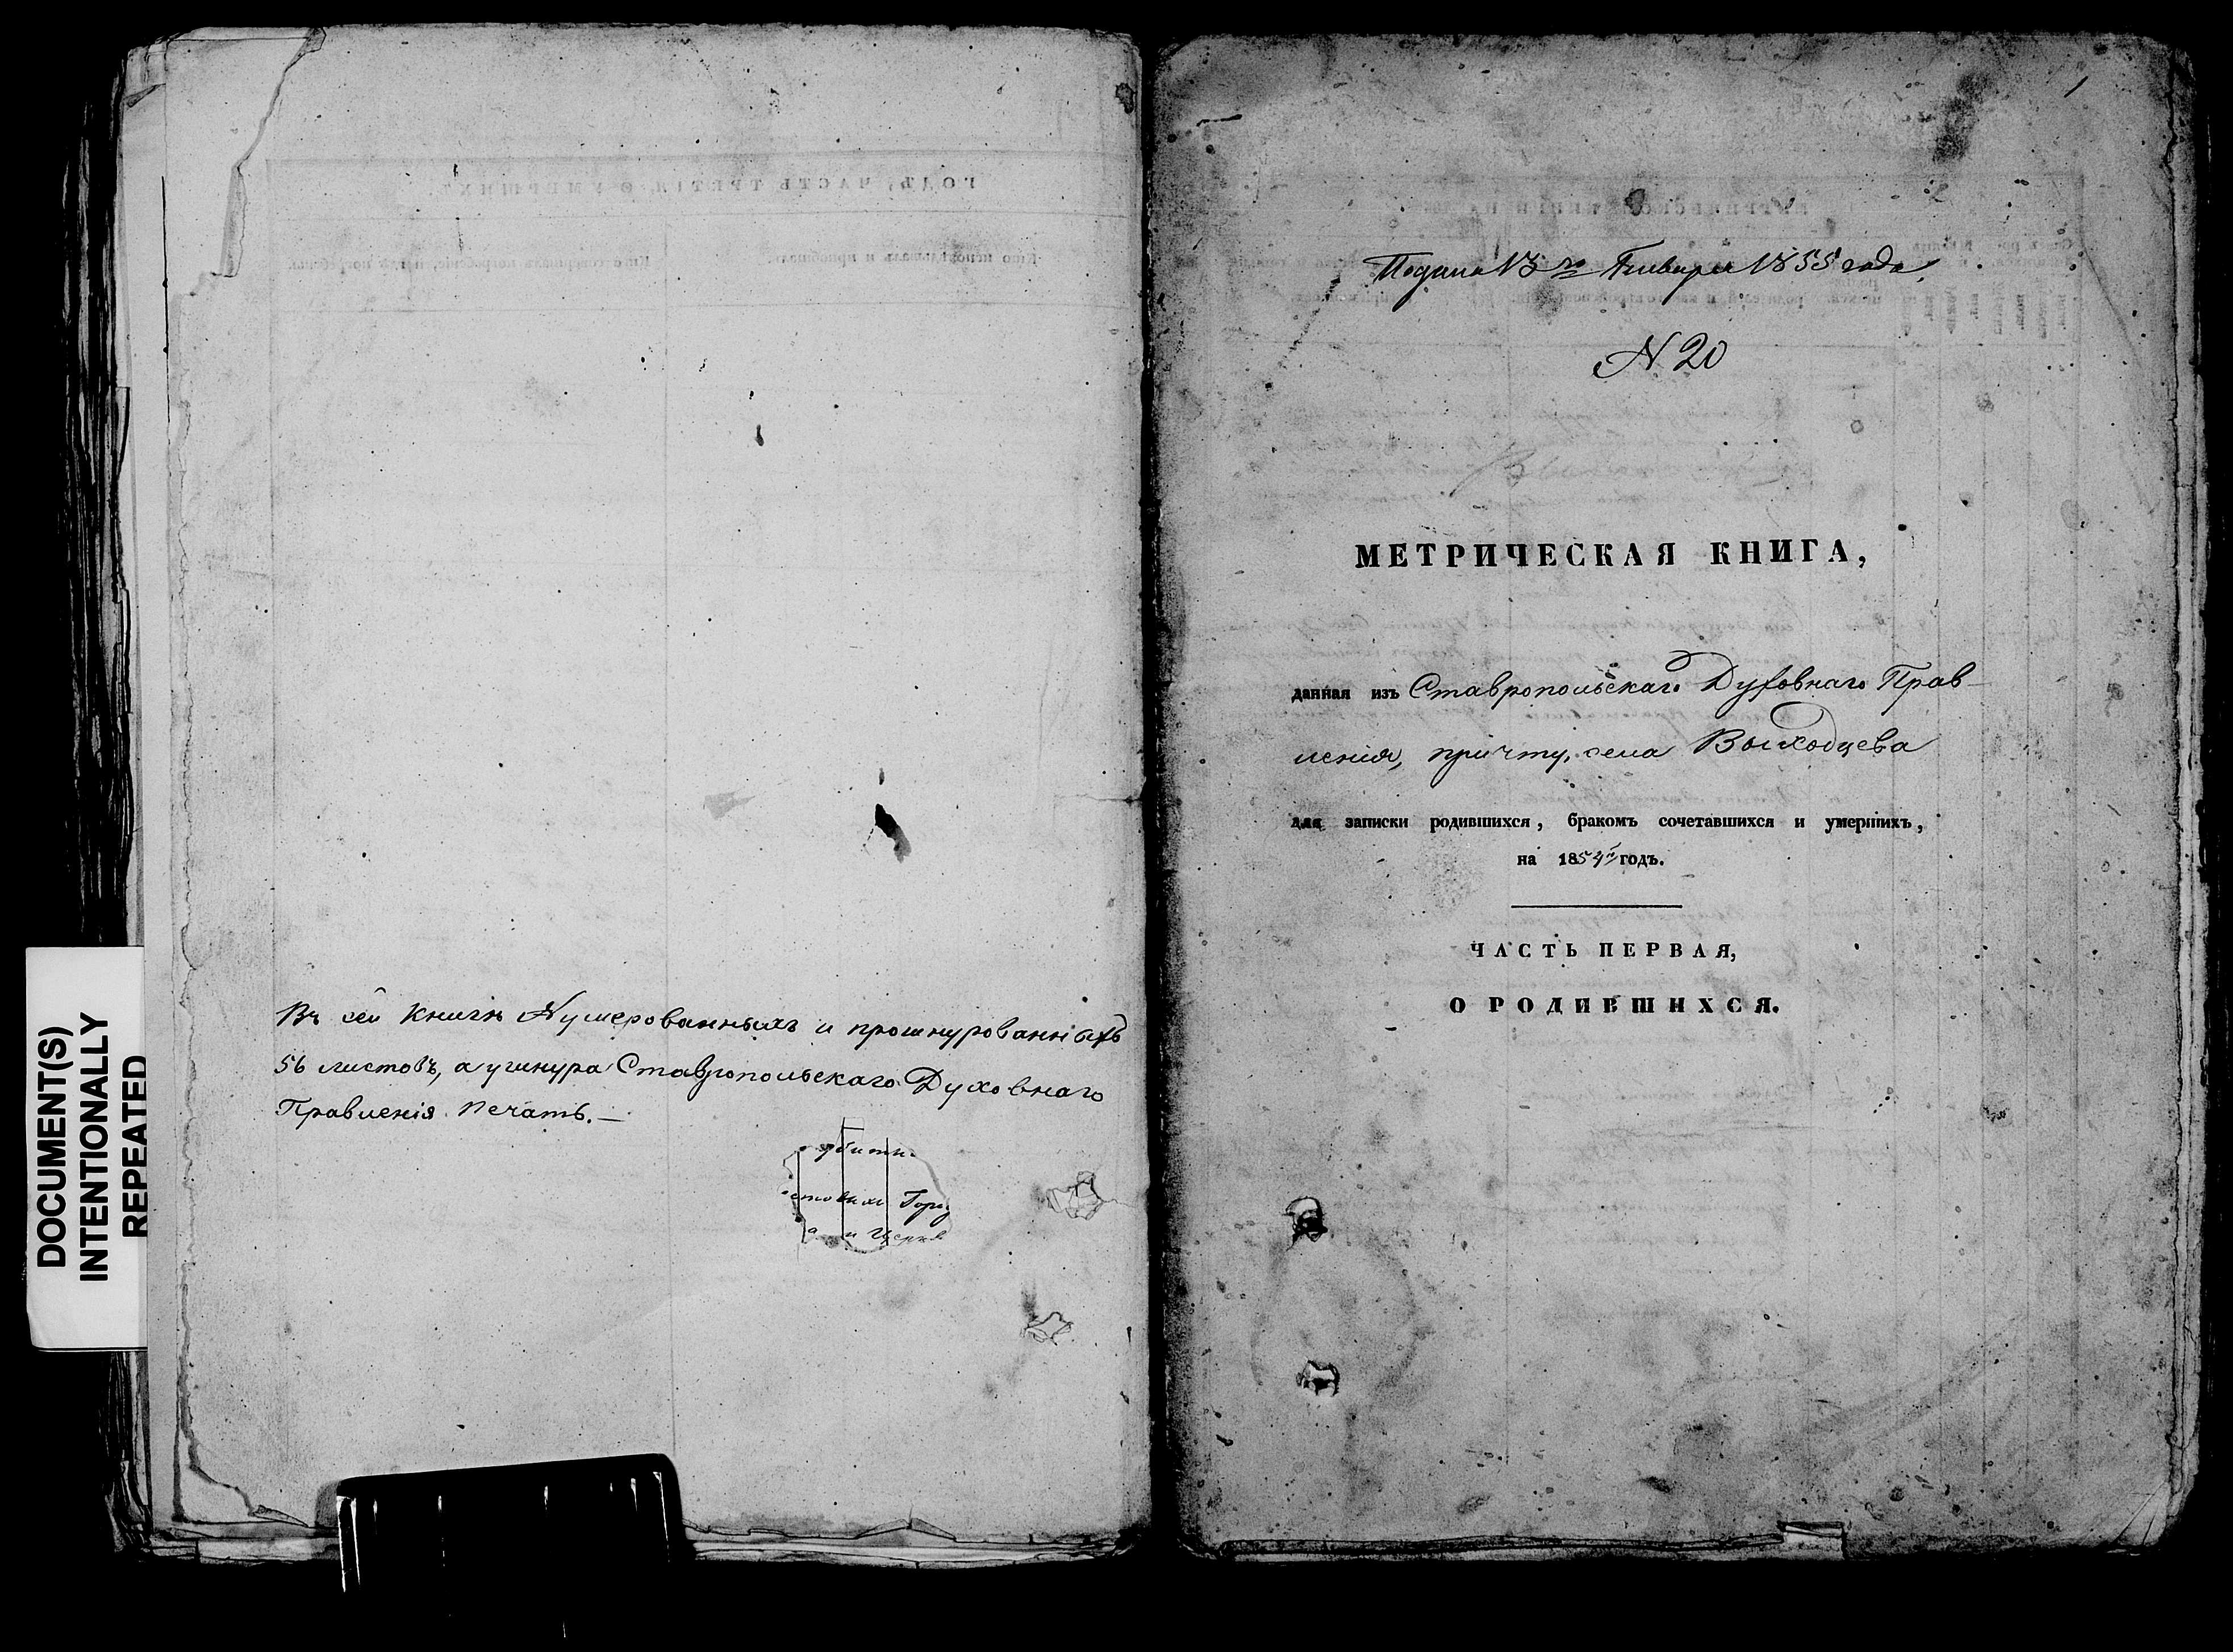 DOCUMENT(S)
INTENTIONALLY
REPEATED
Въ сей Книгѣ Нумерованныхъ и прошнурованныхъ
56 листовъ, а у шнура Ставропольскаго Духовнаго
Правленія печать.—
Горо
и Церкв
1
Подана 13го Января 1855 года
N 20
МЕТРИЧЕСКАЯ КНИГА,
данная изъ Ставропольскаго Духовнаго Прав-
ленія, причту села Выходцева
для записки родившихся, бракомъ сочетавшихся и умершихъ,
на 1854й годъ.
ЧАСТЬ ПЕРВАЯ,
О РОДИВШИХСЯ.